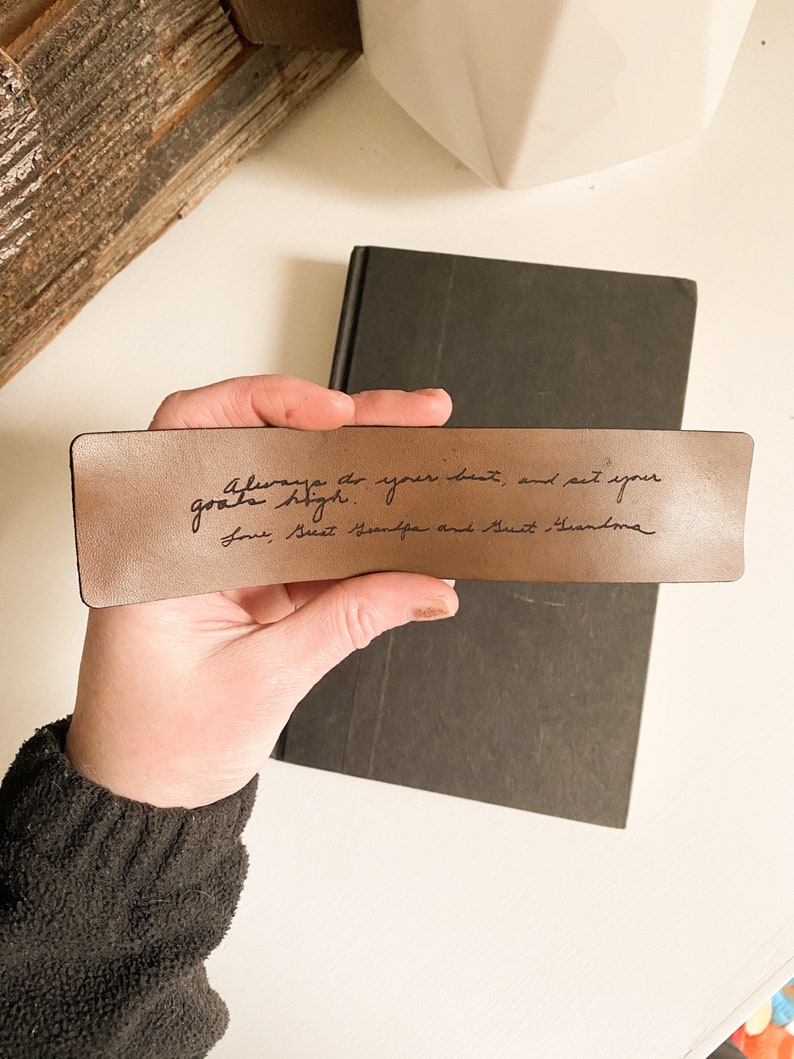 Always do your best, and set your
goals high.
Love, Great Grandpa and Great Grandma